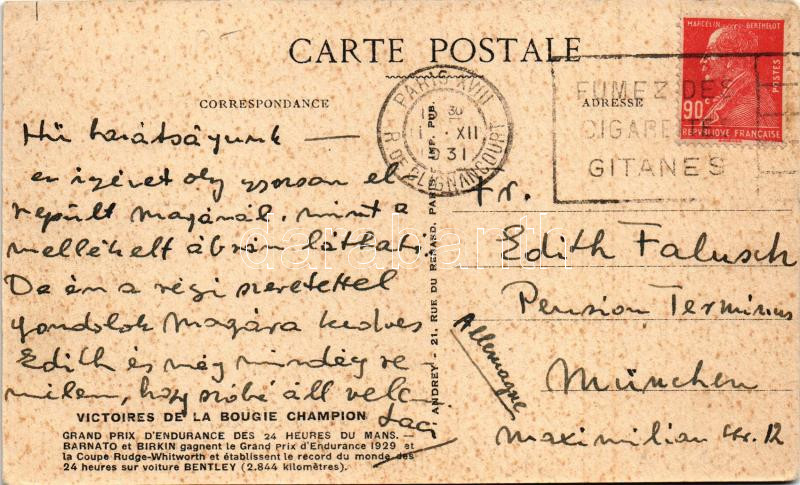 CARTE POSTALE
CORRESPONDANCE
ADRESSE
MARCELIN BERTHELOT
POSTES
90c
REPVBLIQVE FRANÇAISE
PARIS XVIII
XII
31
R. DE CLIGNANCOURT
FUMEZ DES
CIGARETTES
GITANES
Hű barátságunk —
en izévet oly gyorsan el
repült magánál, mint a
mellékelt ábrán látható.
De én a régi szeretettel
gondolok magára kedves
Edith és még mindég re
mélem, hogy szóbé áll vel
Laci
Fr.
Edith Falusch
Pension Terminus
München
Maximilian str. 12
Allemagne
ANDREY - 21, RUE DU RENARD, PARIS. IMP. PUB.
VICTOIRES DE LA BOUGIE CHAMPION
GRAND PRIX D'ENDURANCE DES 24 HEURES DU MANS. —
BARNATO et BIRKIN gagnent le Grand Prix d'Endurance 1929 et
la Coupe Rudge-Whitworth et établissent le record du monde des
24 heures sur voiture BENTLEY (2.844 kilomètres).
darabanth